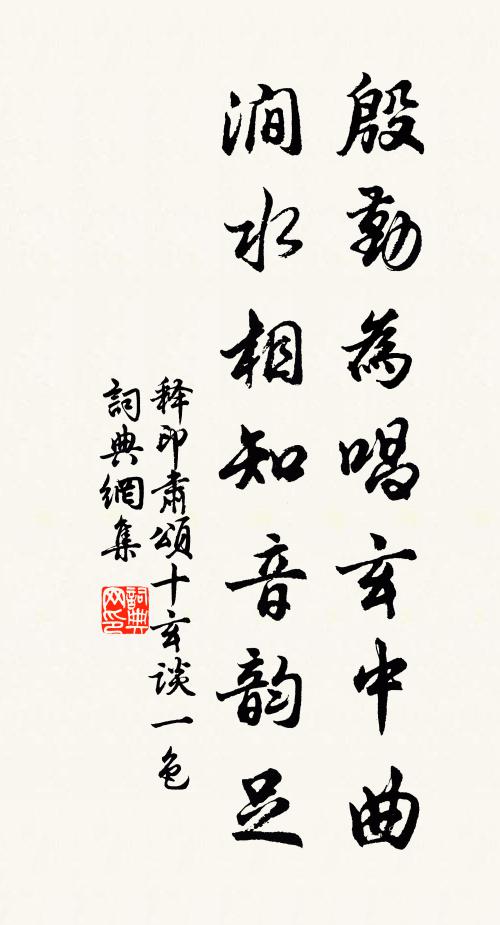 殷勤為唱玄中曲
澗水相知音韵足
释印肅頌十玄談一色
詞典網集
詞典网印